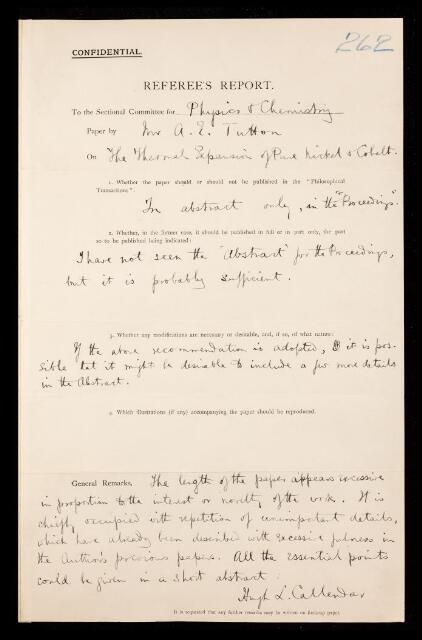 CONFIDENTIAL.
262
REFEREE'S REPORT.
To the Sectional Committee for Physics & Chemistry
Paper by Mr A. E. Tutton
On "The Thermal Expansion of Pure Nickel & Cobalt.
1. Whether the paper should or should not be published in the "Philosophical
Transactions":
In abstract only, in the "Proceedings".
2. Whether, in the former case, it should be published in full or in part only, the part
so to be published being indicated:
I have not seen the "Abstract" for the Proceedings,
but it is probably sufficient.
3. Whether any modifications are necessary or desirable, and, if so, of what nature:
If the above recommendation is adopted, it is pos-
sible that it might be desirable to include a few more details
in the Abstract.
4. Which illustrations (if any) accompanying the paper should be reproduced.
General Remarks. The length of the paper appears excessive
in proportion to the interest or novelty of the work. It is
chiefly occupied with repetition of unimportant details,
which have already been described with excessive fulness in
the Author's previous papers. All the essential points
could be given in a short abstract.
Hugh L. Callendar
It is requested that any further remarks may be written on foolscap paper.